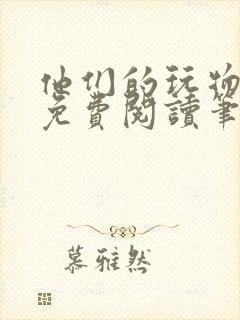 他们的玩物
免費閱讀筆
慕雅然